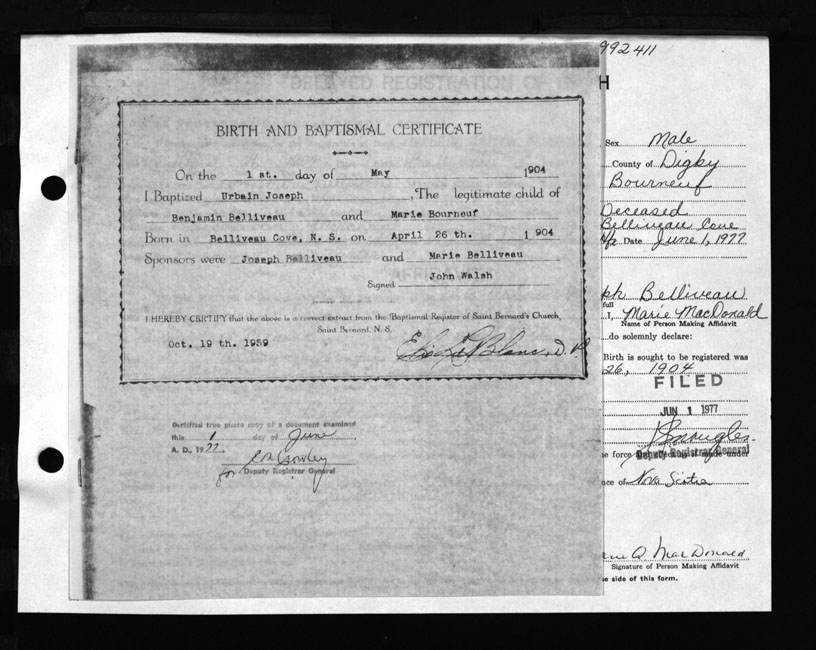 992411
DELAYED REGISTRATION OF
H
BIRTH AND BAPTISMAL CERTIFICATE
On the 1 st. day of May 1904
I Baptized Urbain Joseph ,The legitimate child of
Benjamin Belliveau and Marie Bourneuf
Born in Belliveau Cove, N. S. on April 26 th. 1904
Sponsors were Joseph Belliveau and Marie Belliveau
Signed John Walsh
I HEREBY CERTIFY that the above is a correct extract from the Baptismal Register of Saint Bernard's Church,
Saint Bernard, N. S.
Oct. 19 th. 1959
Certified true photo copy of a document examined
this 1 day of June
A. D., 1977.
for Deputy Registrar General
Sex Male
County of Digby
Bourneuf
Deceased
Belliveau Cove
Date June 1, 1977
ph Belliveau
full
I, Marie MacDonald
Name of Person Making Affidavit
do solemnly declare:
Birth is sought to be registered was
26, 1904
FILED
JUN 1 1977
Deputy Registrar General
e force if made under
nce of Nova Scotia
MacDonald
Signature of Person Making Affidavit
e side of this form.